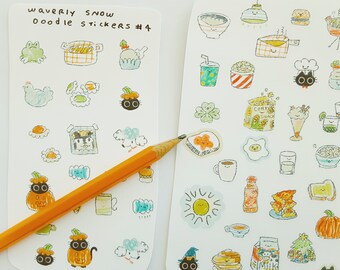 waverly snow
Doodle Stickers #4